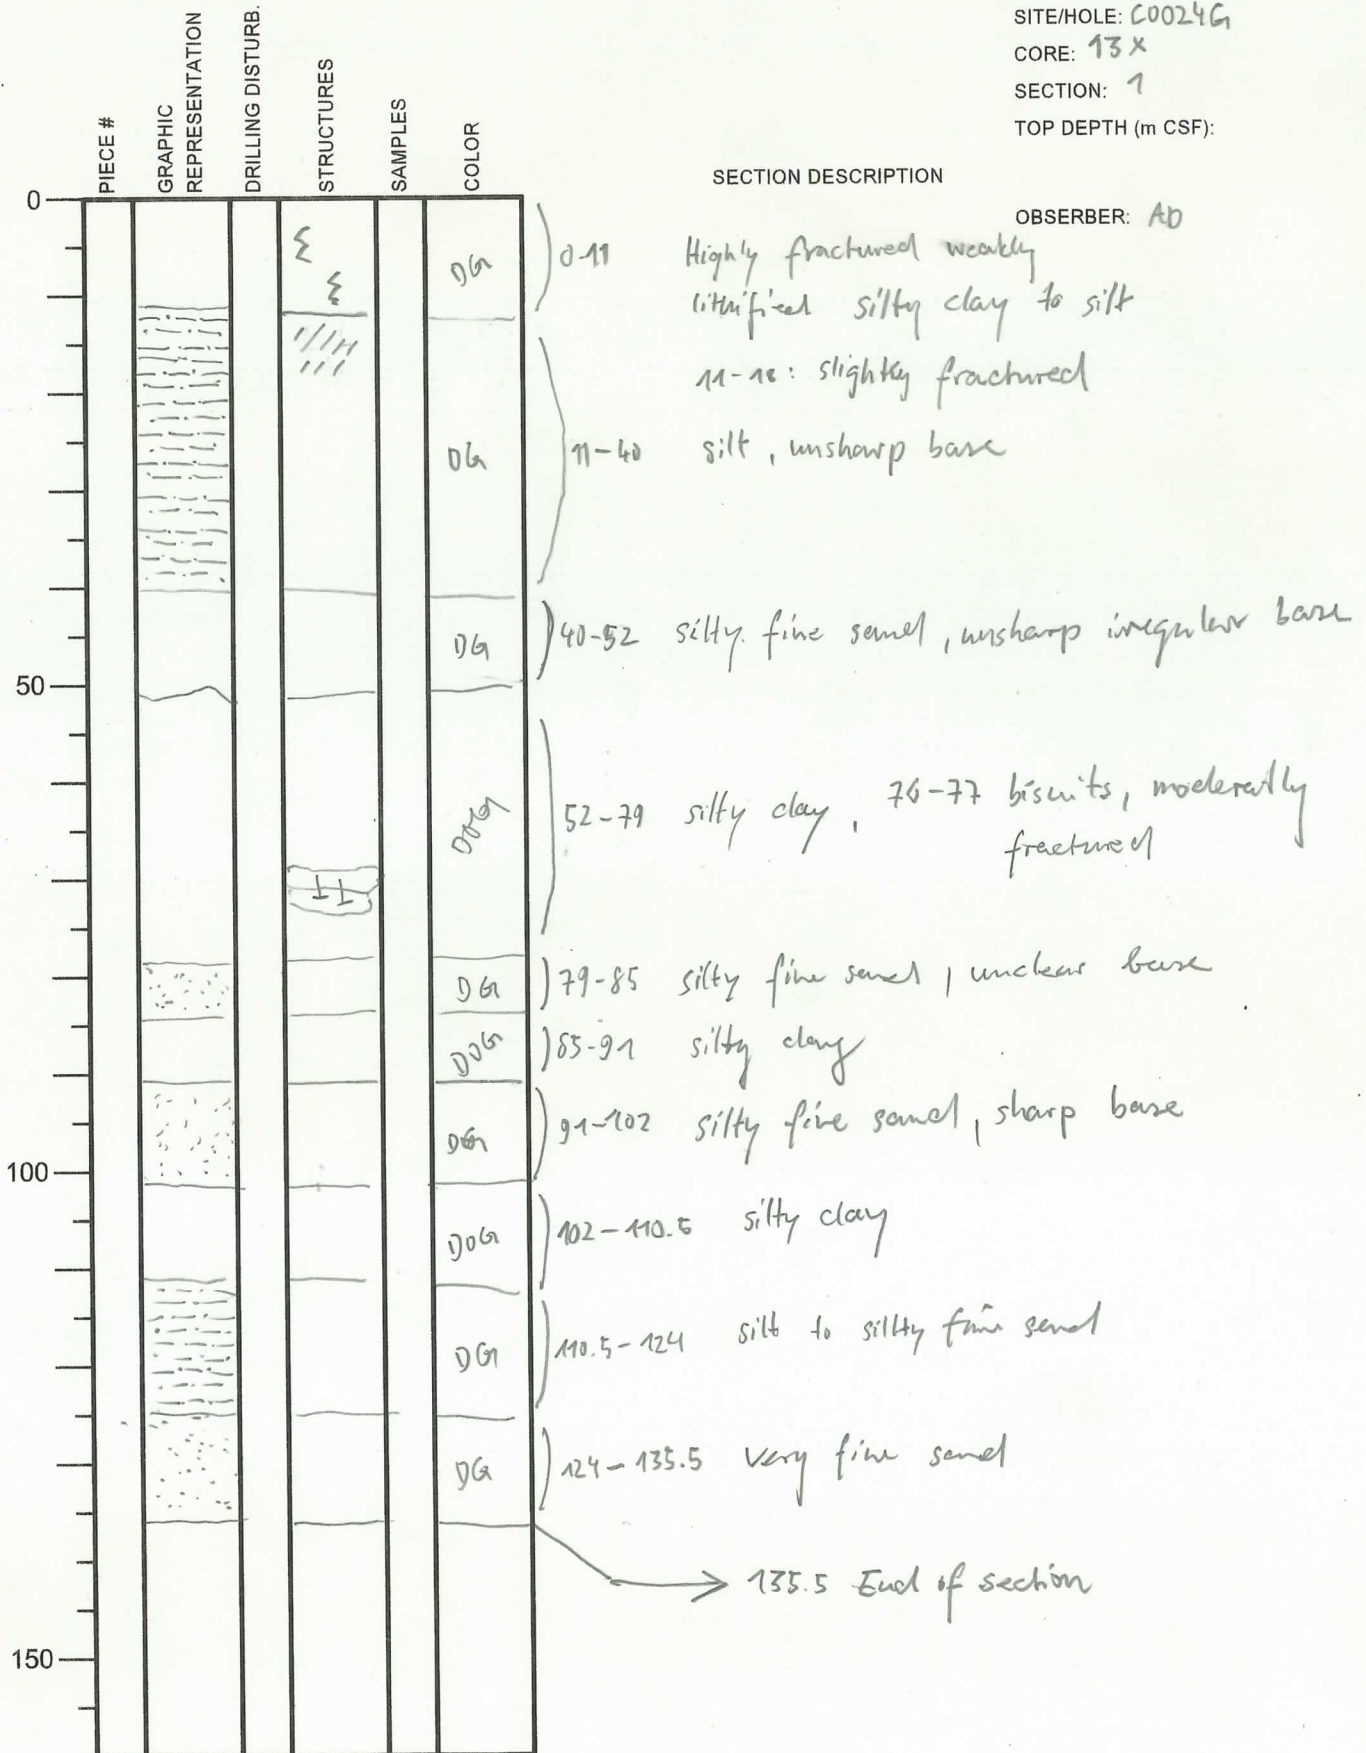 SITE/HOLE: C0024G
CORE: 13X
SECTION: 1
TOP DEPTH (m CSF):
PIECE #
GRAPHIC REPRESENTATION
DRILLING DISTURB.
STRUCTURES
SAMPLES
COLOR
SECTION DESCRIPTION
OBSERBER: AD
0
DG
0-11 Highly fractured weakly
lithified silty clay to silt
11-18: slightky fractured
DG
11-40 silt, unsharp base
DG
40-52 silty fine sand, unsharp irregular base
50
DOG
52-79 silty clay, 76-77 biscuits, moderatly
fractured
DG
79-85 silty fine sand, unclear base
DOG
85-91 silty clay
DG
91-102 silty fine sand, sharp base
100
DOG
102-110.5 silty clay
DG
110.5-124 silt to sillty fine sand
DG
124-135.5 very fine sand
135.5 End of section
150